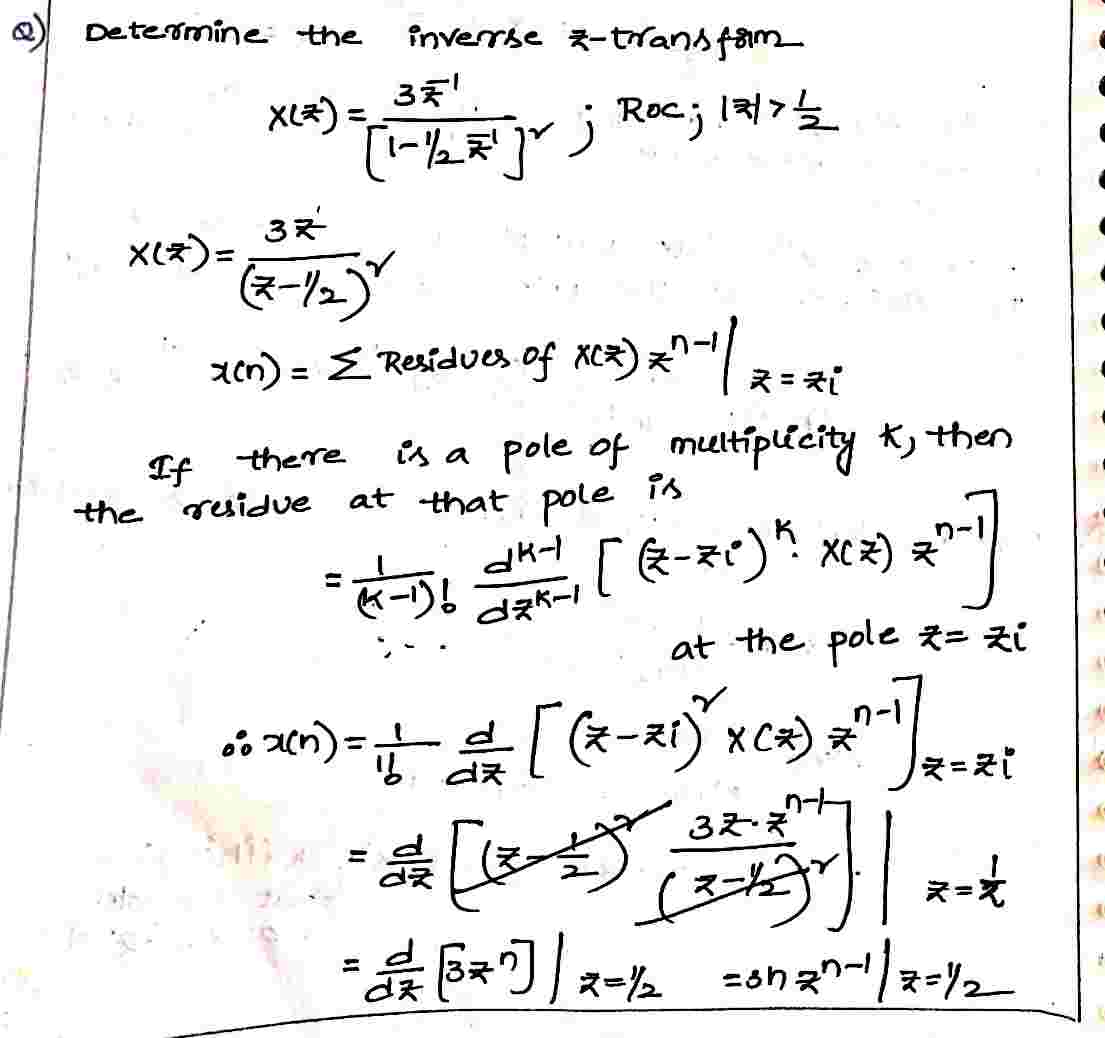 Q) Determine the inverse z-transform
X(z) = 3z⁻¹ / [1-1/2 z⁻¹]² ; ROC; |z| > 1/2
X(z) = 3z / (z-1/2)²
x(n) = Σ Residues of X(z) zⁿ⁻¹ | z = zi
If there is a pole of multiplicity K, then
the residue at that pole is
= 1/(K-1)! d^(K-1)/dz^(K-1) [(z-zi)^K. X(z) zⁿ⁻¹]
at the pole z = zi
∴ x(n) = 1/1! d/dz [(z-zi)² X(z) zⁿ⁻¹] z = zi
= d/dz [(z-1/2)² 3z·zⁿ⁻¹ / (z-1/2)²] | z = 1/2
= d/dz [3zⁿ] | z = 1/2 = 3n zⁿ⁻¹ | z = 1/2